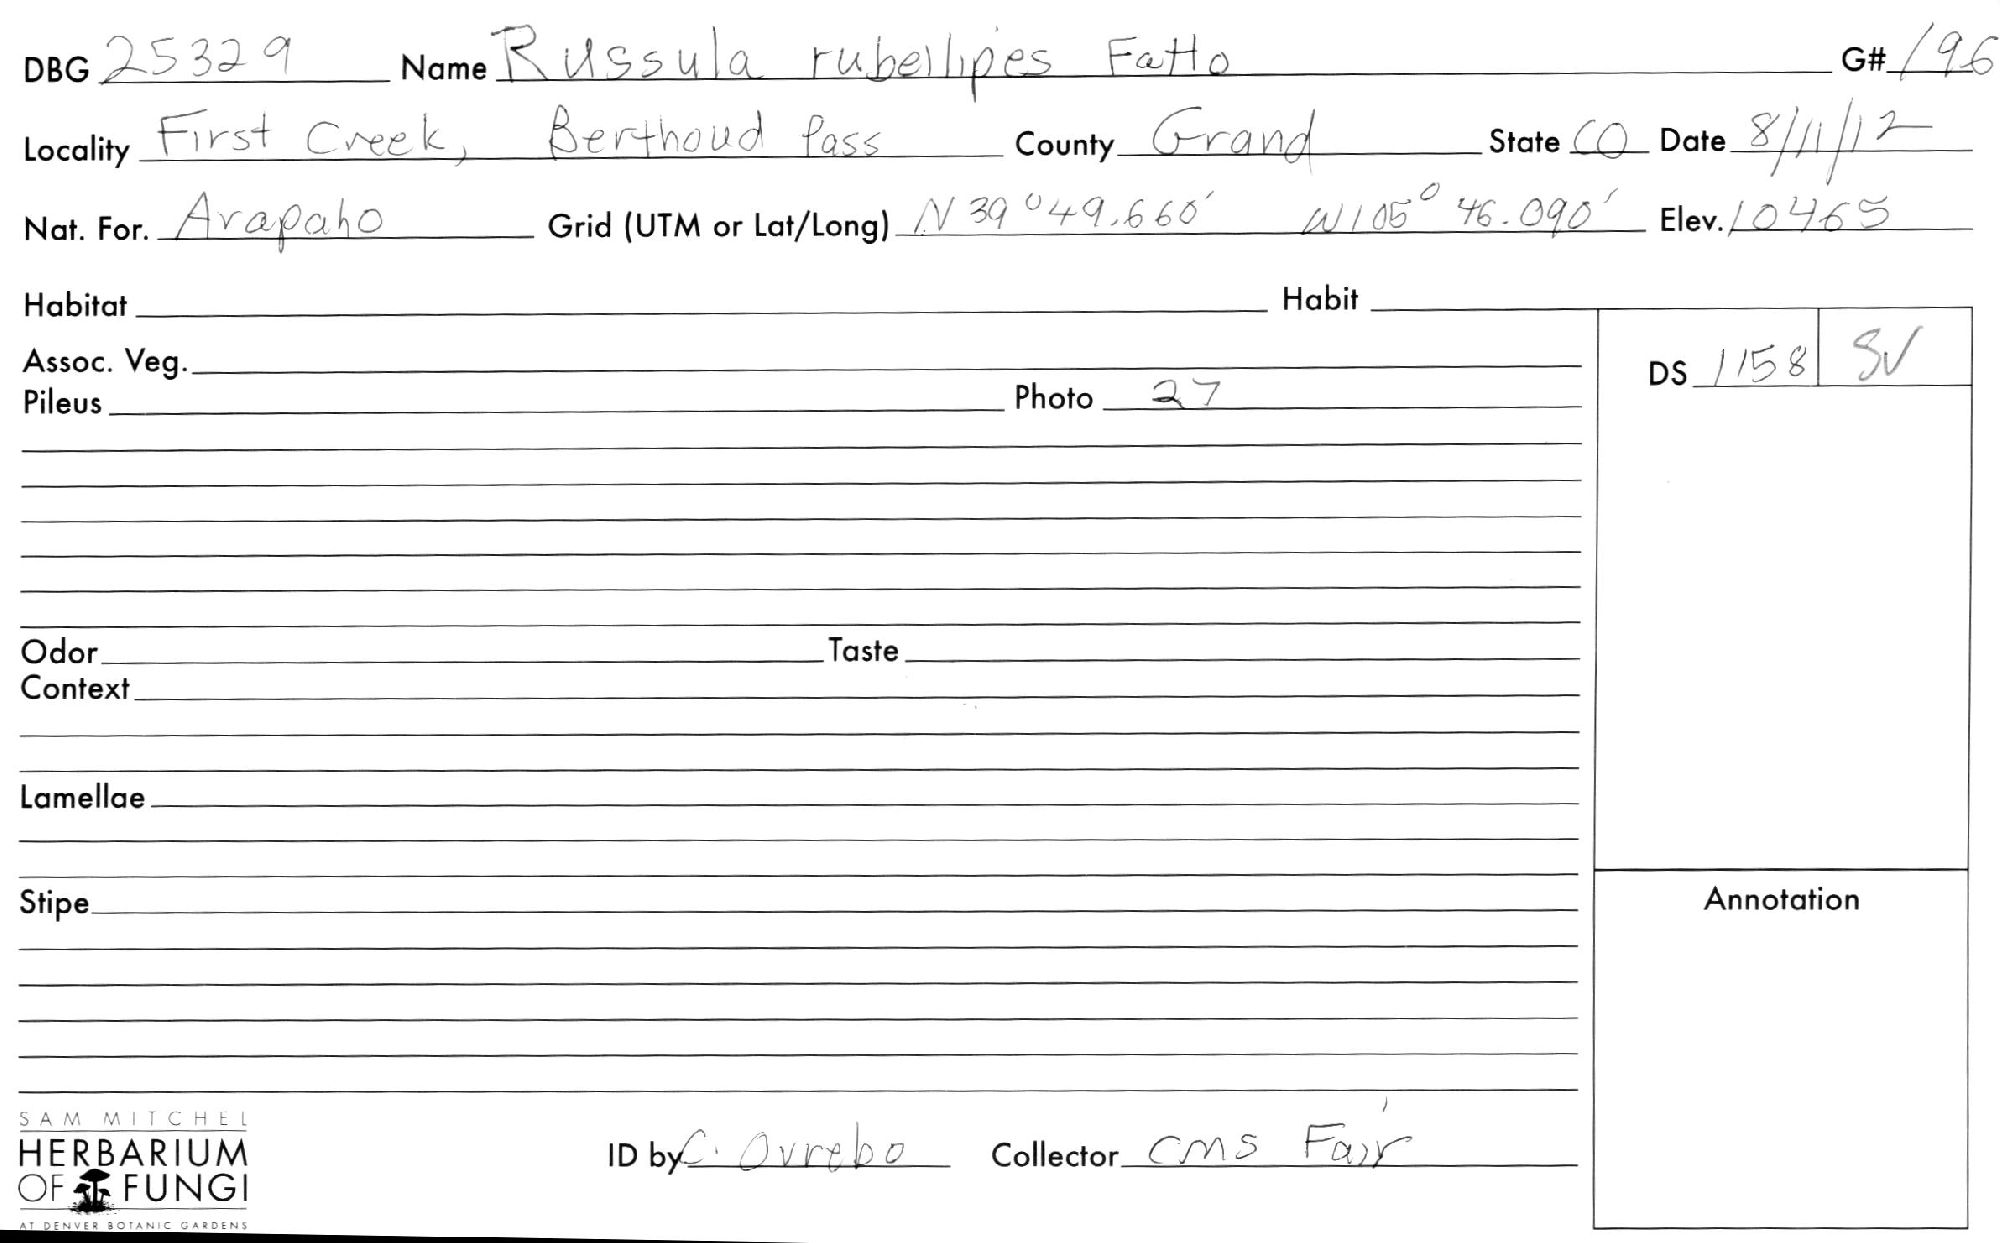 DBG 25329 Name Russula rubellipes Fatto G# 196
Locality First Creek, Berthoud Pass County Grand State CO Date 8/11/12
Nat. For. Arapaho Grid (UTM or Lat/Long) N 39°49.660' W105° 46.090' Elev. 10465
Habitat Habit
Assoc. Veg. DS 1158 SV
Pileus Photo 27
Odor Taste
Context
Lamellae
Stipe
Annotation
SAM MITCHEL
HERBARIUM
OF FUNGI
AT DENVER BOTANIC GARDENS
ID by C. Ovrebo Collector CMS Fair